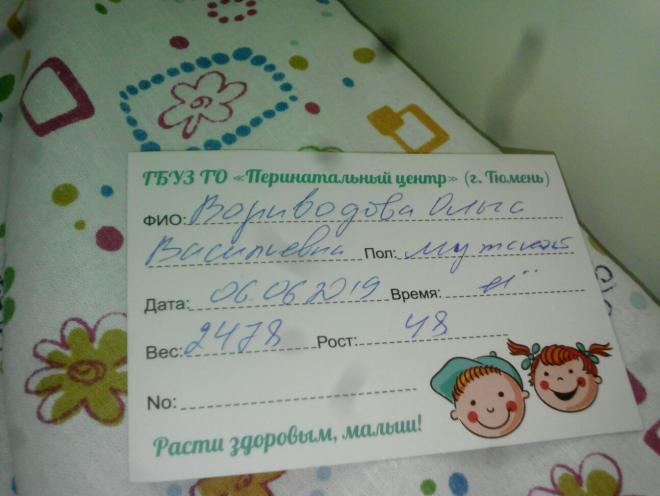 ГБУЗ ТО «Перинатальный центр» (г. Тюмень)
ФИО: Вориводова Ольга
Васильевна Пол: мужской
Дата: 06.06.2019 Время:
Вес: 2478 Рост: 48
No:
Расти здоровым, малыш!